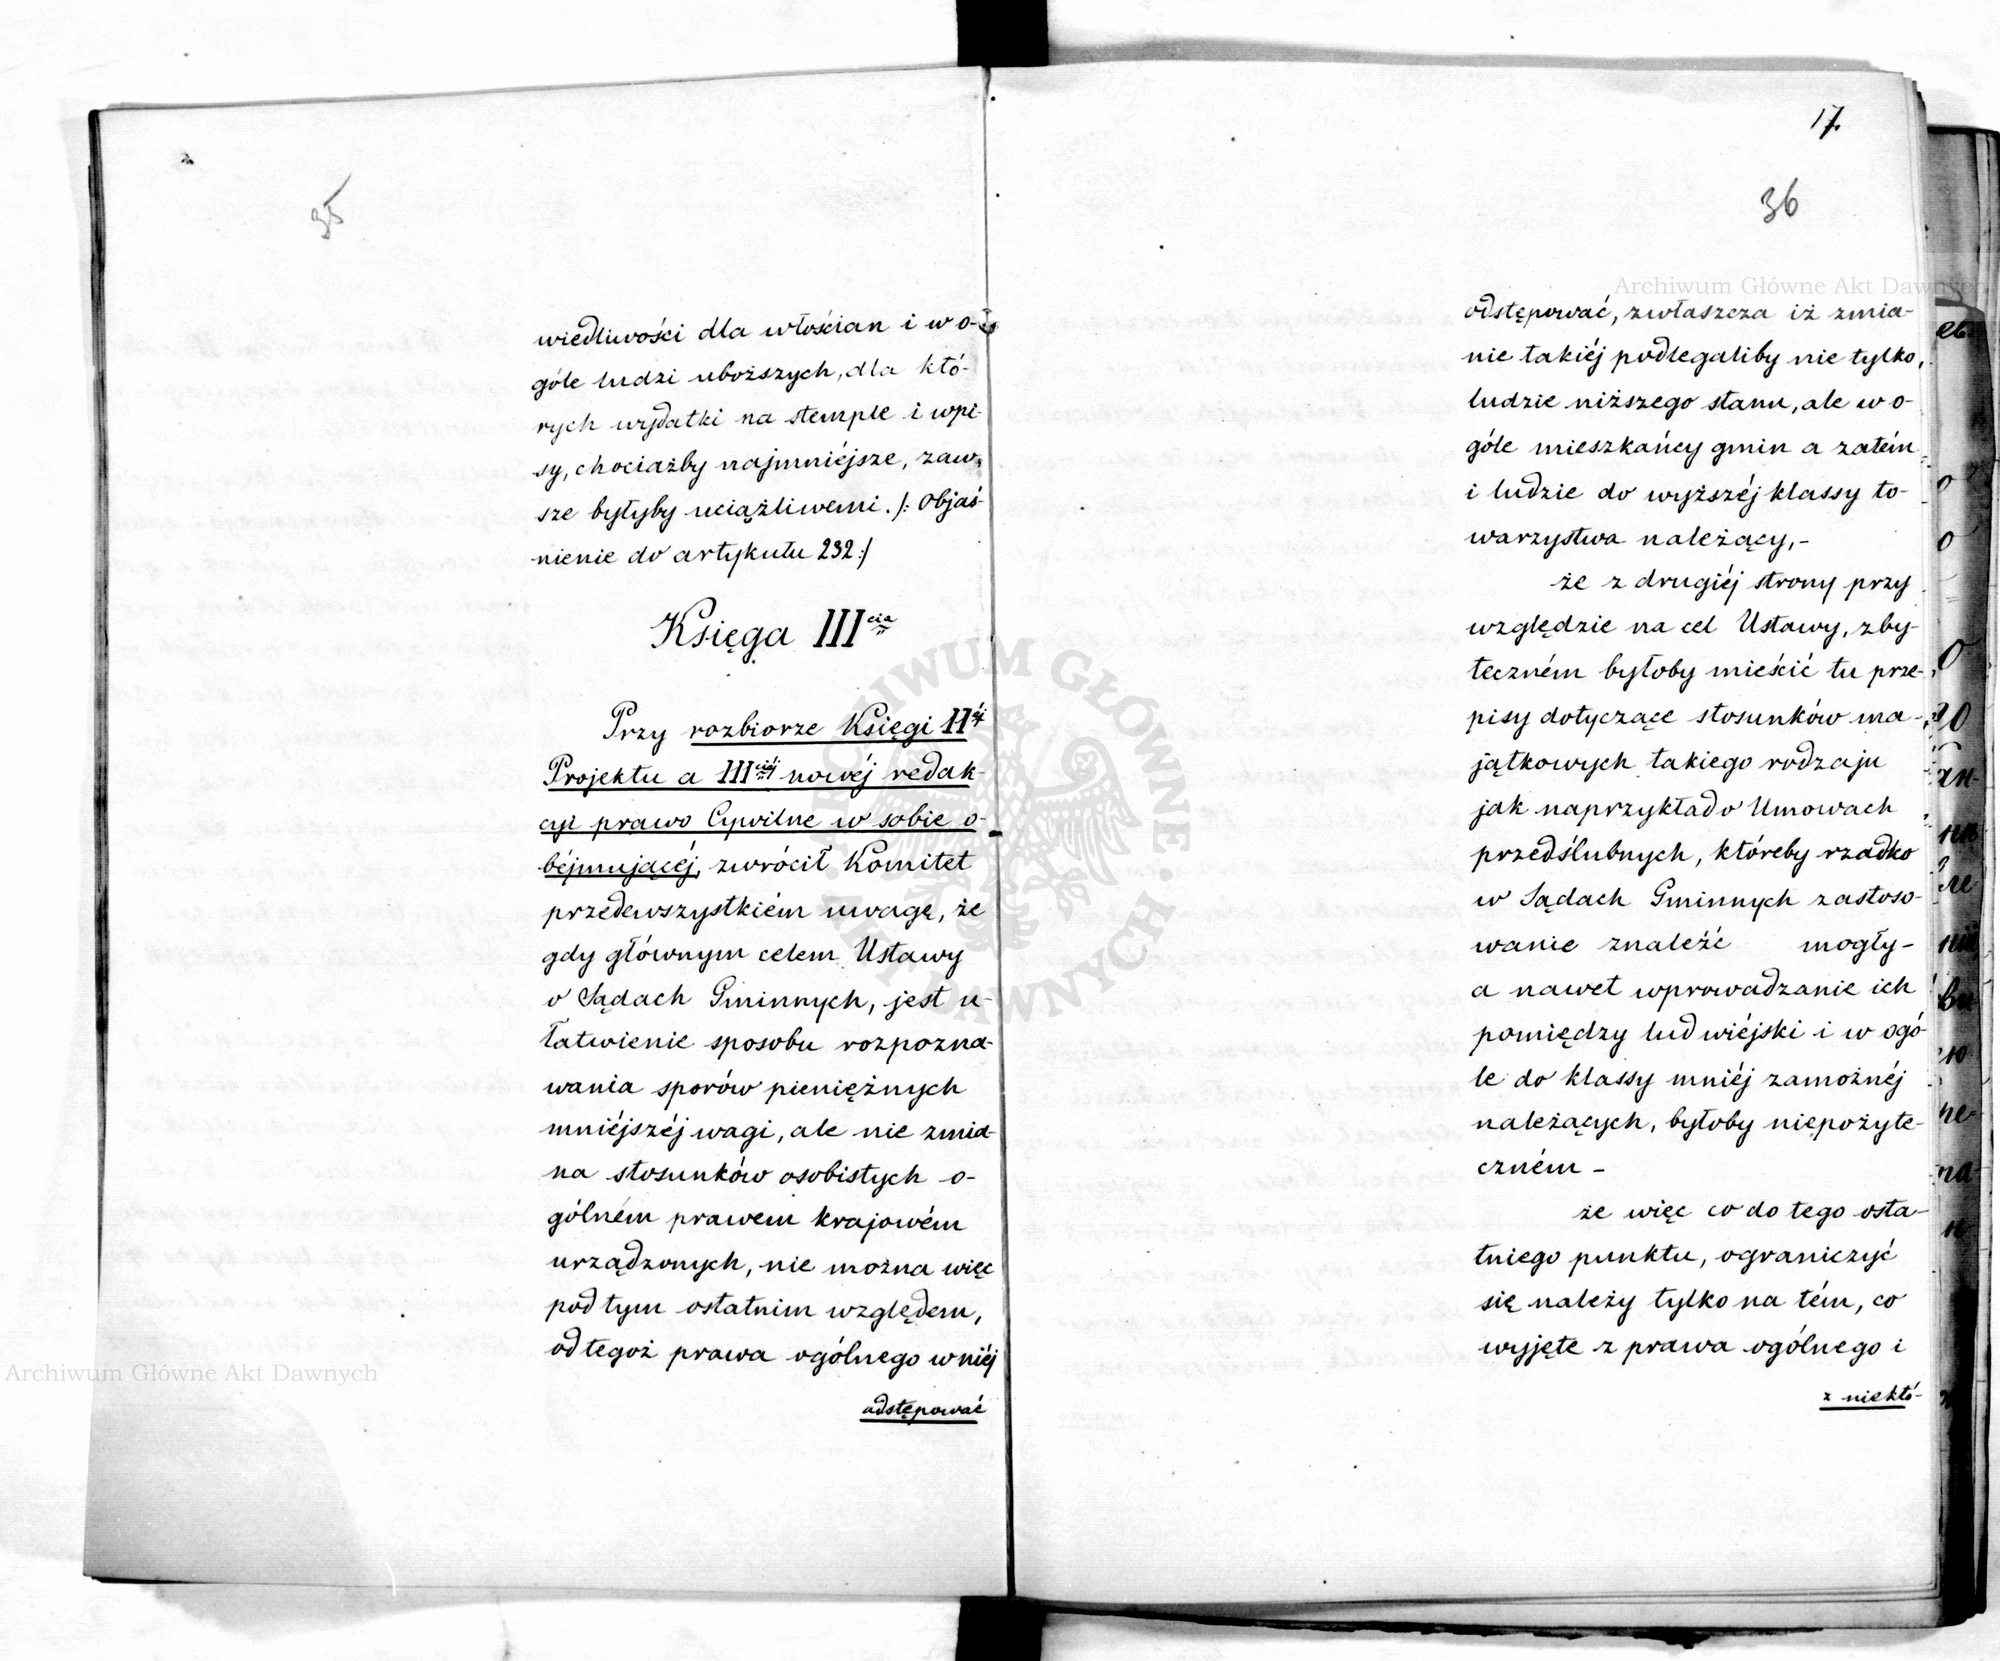 35
wiedliwości dla włościan i w o-
góle ludzi uboższych, dla któ-
rych wydatki na stemple i wpi-
sy, chociażby najmniéjsze, zaw-
sze byłyby uciążliwemi. /: Objaś-
nienie do artykułu 232 :/
Księga III cia
Przy rozbiorze Księgi II éj
Projektu a III ciéj nowéj redak-
cyi prawo Cywilne w sobie o-
béjmującéj, zwrócił Komitet
przedewszystkiém uwagę, że
gdy głównym celem Ustawy
o Sądach Gminnych, jest u-
łatwienie sposobu rozpozna-
wania sporów pieniężnych
mniéjszéj wagi, ale nie zmia-
na stosunków osobistych o-
gólném prawem krajowém
urządzonych, nie można więc
pod tym ostatnim względem,
od tegoż prawa ogólnego w niéj
odstępować
17.
36
odstępować, zwłaszcza iż zmia-
nie takiéj podlegaliby nie tylko,
ludzie niższego stanu, ale w o-
góle mieszkańcy gmin a zatém
i ludzie do wyższéj klassy to-
warzystwa należący,-
że z drugiéj strony przy
względzie na cel Ustawy, zby-
teczném byłoby mieścić tu prze-
pisy dotyczące stosunków ma-
jątkowych takiego rodzaju
jak naprzykład o Umowach
przedślubnych, któreby rzadko
w Sądach Gminnych zastoso-
wanie znaleźć mogły-
a nawet wprowadzanie ich
pomiędzy lud wiéjski i w ogó-
le do klassy mniéj zamożnéj
należących, byłoby niepożyte-
czném -
że więc co do tego osta-
tniego punktu, ograniczyć
się należy tylko na tém, co
wyjęte z prawa ogólnego i
z niektó-
Archiwum Główne Akt Dawnych
Archiwum Główne Akt Dawnych
ARCHIWUM GŁÓWNE AKT DAWNYCH